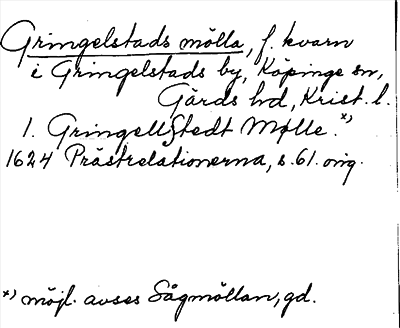 Gringelstads mölla, f. kvarn
i Gringelstads by, Köpinge sn,
Gärds hd, Krist. l.
1. Gringellstedt Mølle.*)
1624 Prästrelationerna, s. 61. orig.
*) möjl. avses Sågmöllan, gd.